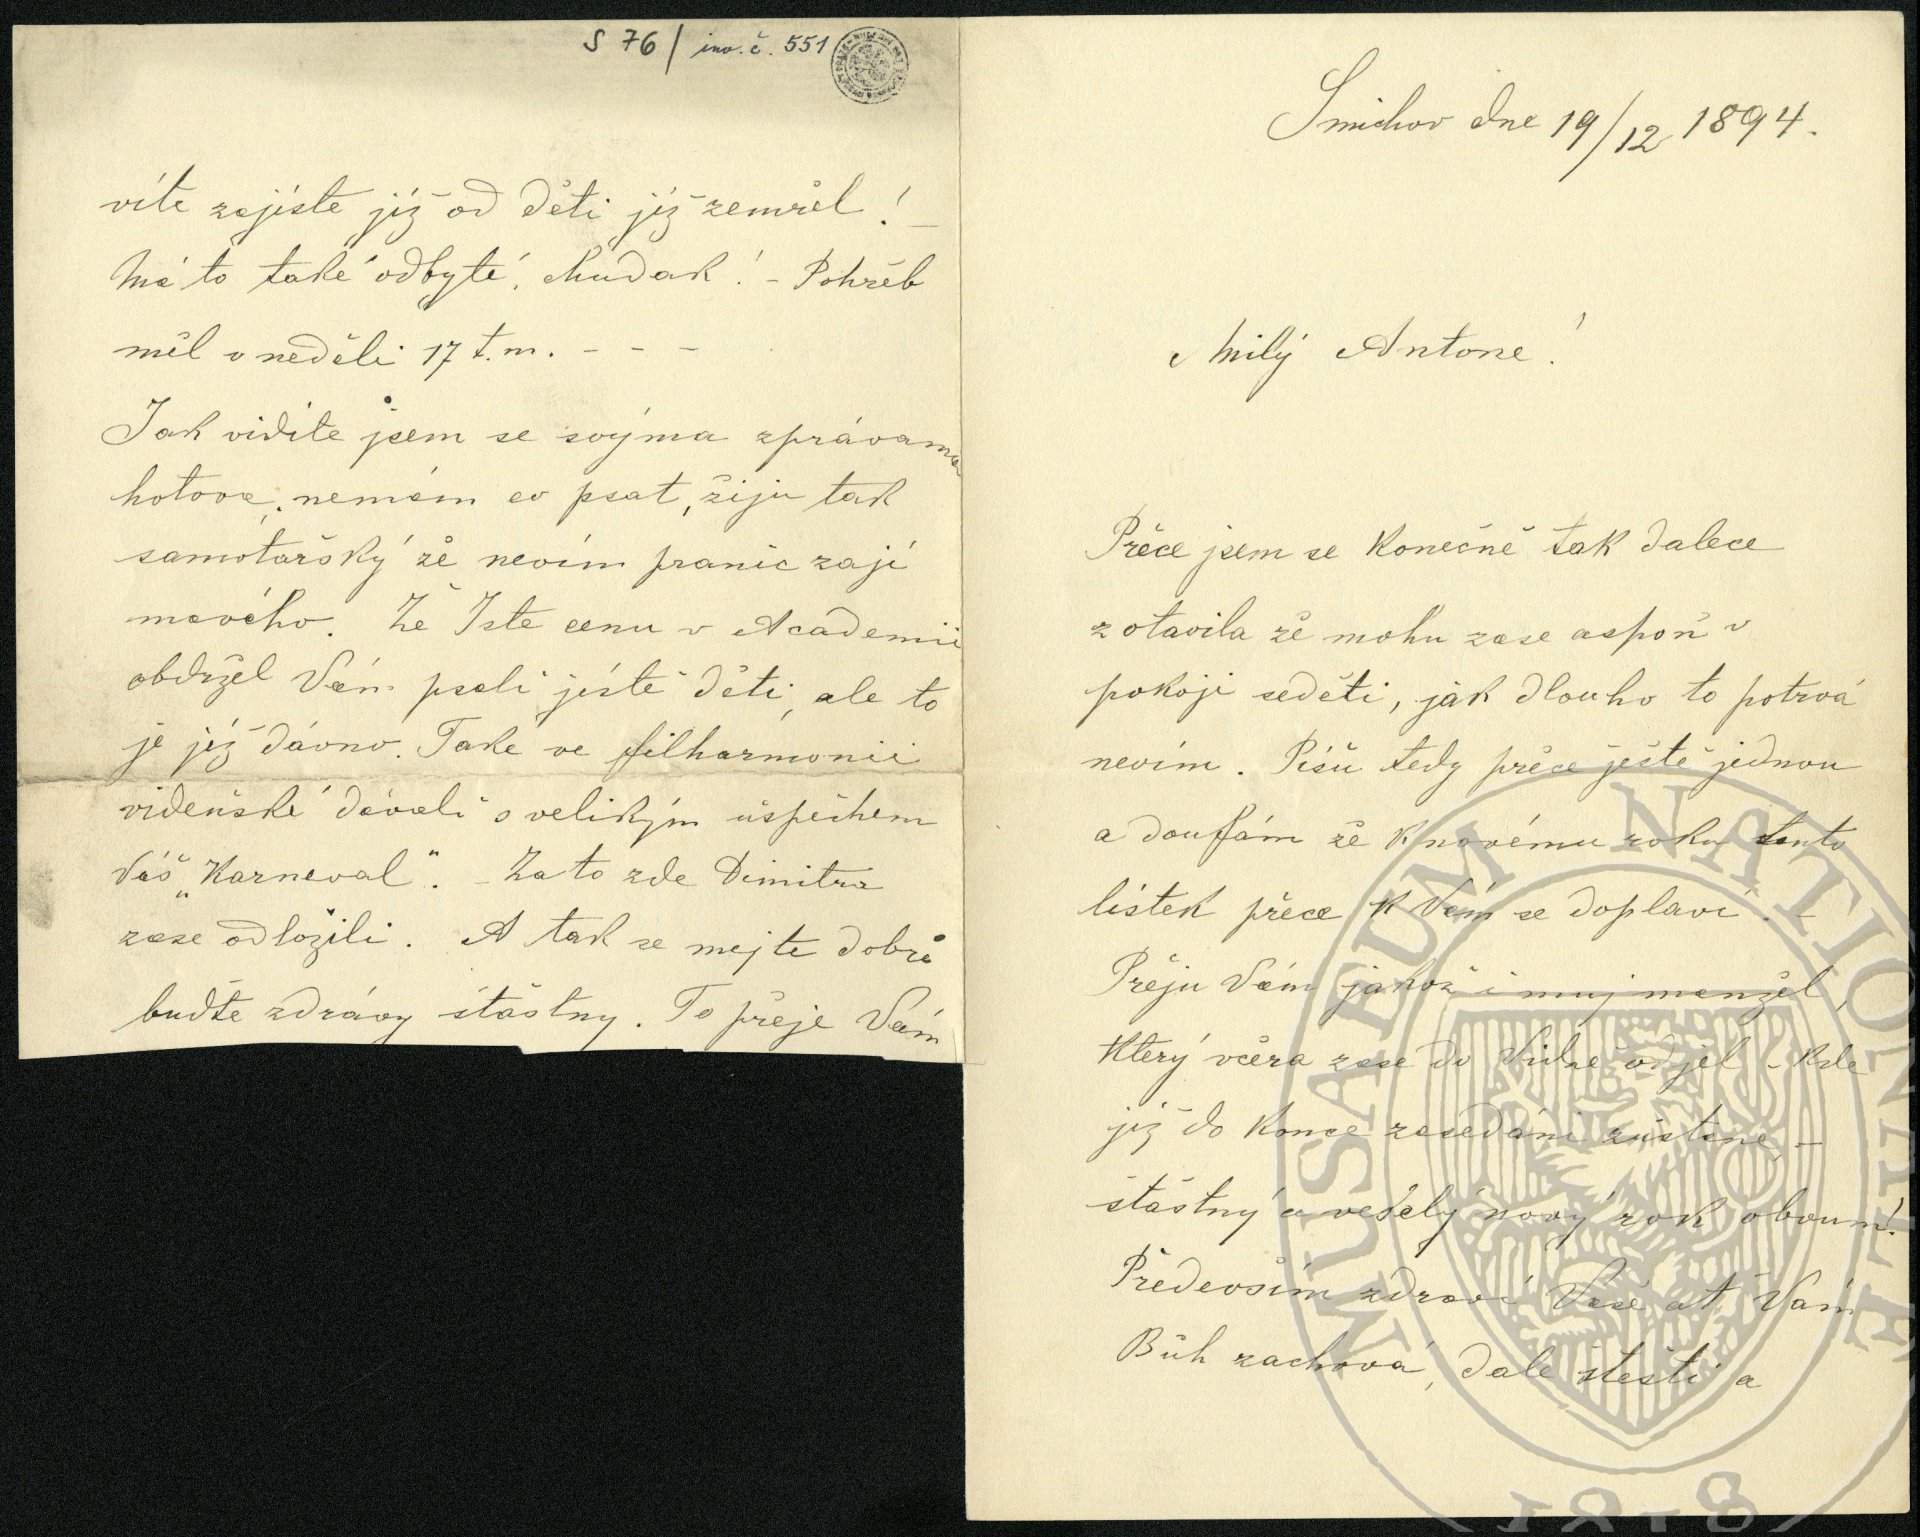 S 76 / inv. č. 551
víte zajíste již od děti již zemřel! –
Má to také odbyté, chudak! – Pohřeb
měl v neděli 17 t. m. – – –
Jak vidíte jsem se svýma zprávama
hotova, nemám co psat, žiju tak
samotařský že nevím pranic zají
mavého. Že Jste cenu v Academii
obdržel Vám psali ještě děti, ale to
je již dávno. Take ve filharmonii
videňské dávali s velikým úspěchem
Váš „Karneval“. – Za to zde Dimitra
zase odložili. A tak se mejte dobře
buďte zdrávy štastny. To přeje Vám
Smichov dne 19/12 1894.
Milý Antone!
Přece jsem se konečně tak dalece
zotavila že mohu zase aspoň v
pokoji seděti, jak dlouho to potrvá
nevím. Píšu tedy přece ještě jednou
a doufám že k novému roku tento
lístek přece k Vám se doplaví. –
Přeju Vám jakož i muj manžel,
který včera zase do Vídně odjel – kde
již do konce zasedání zůstane, –
štastný a veselý nový rok oboum!
Především zdraví Vaše at Vám
Bůh zachová, dale štesti a
MUSAEUM NATIONALE
1818